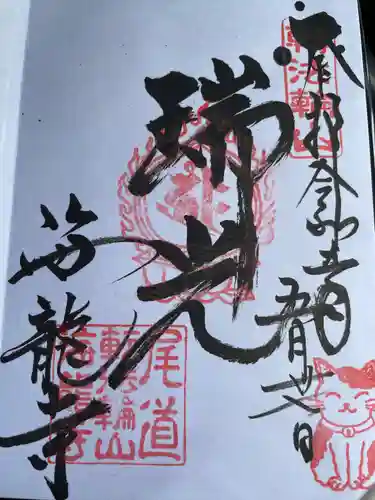 奉拝 令和五年
五月廿日
轉法輪山
瑞光
海龍寺
尾道
轉法輪山
海龍寺